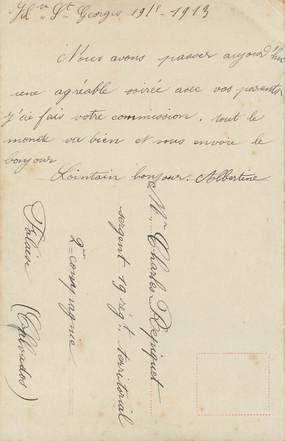 St Georges 19/1 - 1913
Nous avons passer aujourd'hui
une agréable soirée avec vos parents
j'ai fais votre commission, tout le
monde va bien et vous envoie le
bonjour
Lointain bonjour. Albertine
Mr Charles Repiquet
sergent 19 régt territorial
2me compagnie
Falaise (Calvados)